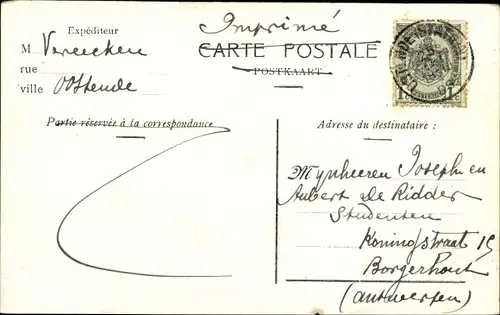 Expéditeur
M Vereecken
rue
ville Oostende
Imprimé
CARTE POSTALE
POSTKAART
1c 1c
Partie réservée à la correspondance
Adresse du destinataire :
Mynheeren Joseph en
Aubert De Ridder
Studenten
Koningstraat 15
Borgerhout
(Antwerpen)